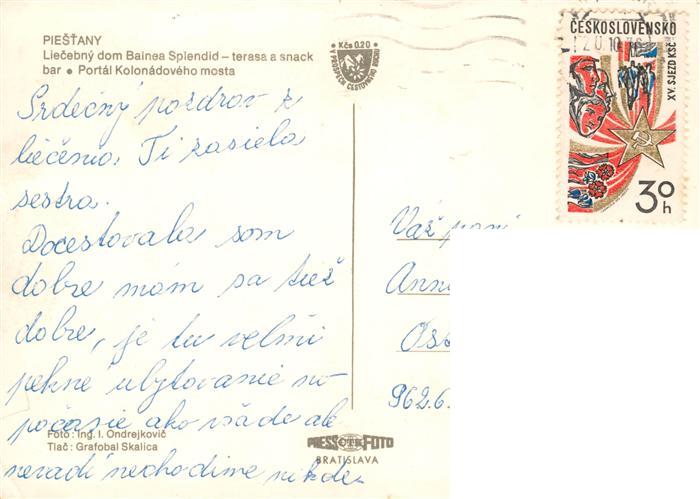 PIEŠŤANY
Liečebný dom Balnea Splendid – terasa a snack
bar • Portál Kolonádového mosta
Kčs 0.20
ČESKOSLOVENSKO
XV. SJEZD KSČ
30 h
Srdečný pozdrav z
liečenia. Ti zasiela
sestra.
Docestovala som
dobre mám sa tiež
dobre, je tu velmi
pekné ubytovanie no
počasie ako všade ale
nevadí nechodíme nikde.
Váž. pani
Ann
962.6
Foto: Ing. I. Ondrejkovič
Tlač: Grafobal Skalica
PRESSFOTO
BRATISLAVA